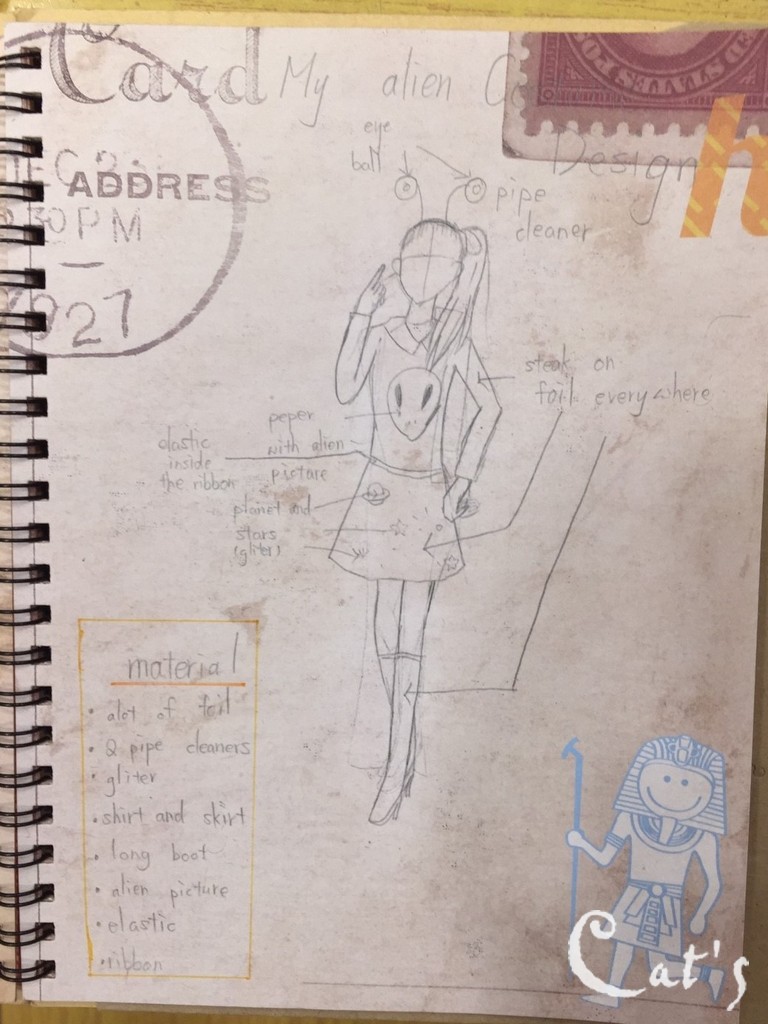 Card
My alien
Design
DEC 2
ADDRESS
30PM
1927
eye
ball
pipe
cleaner
steak on
foil everywhere
peper
with alien
picture
elastic
inside
the ribbon
planet and
stars
(gliter)
material
• alot of foil
• 2 pipe cleaners
• gliter
• shirt and skirt
• long boot
• alien picture
• elastic
• ribbon
Cat's